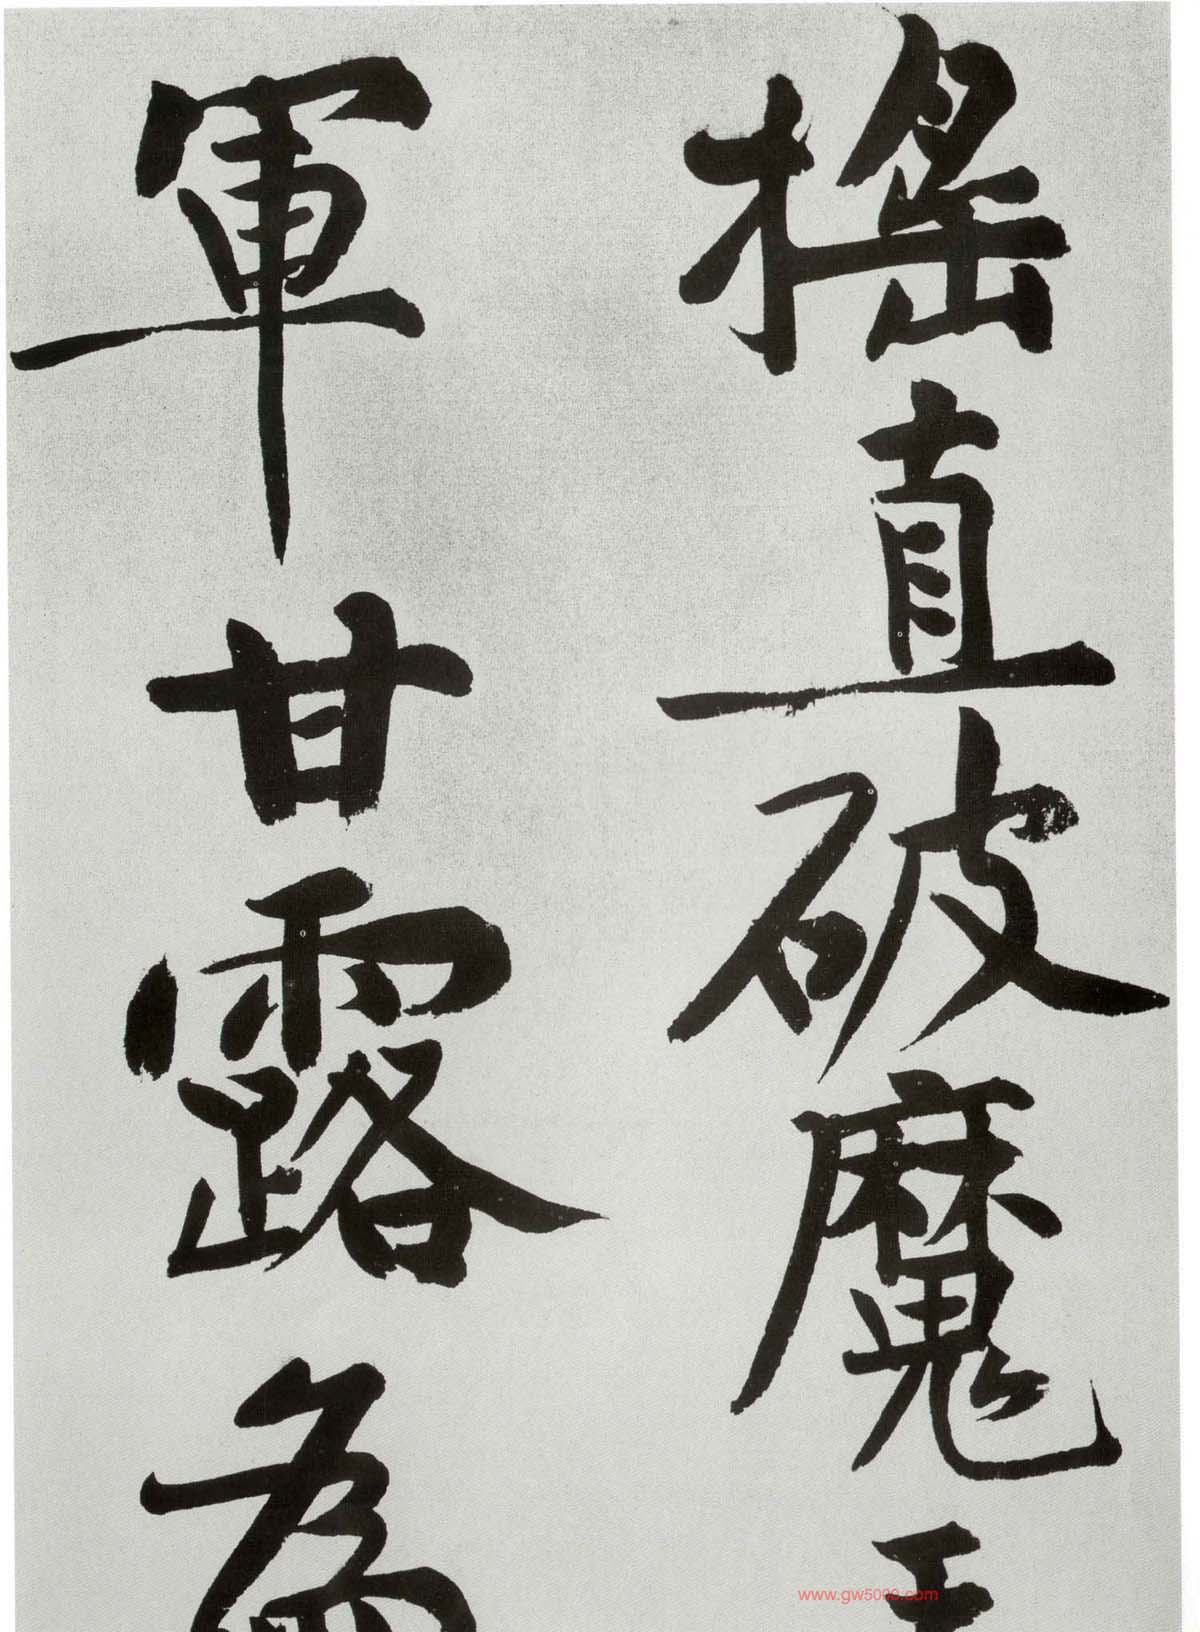 搖直破魔王
軍甘露為
www.gw5000.com